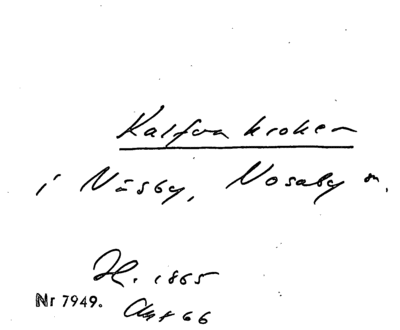 Kalfvakroken
i Näsby, Nosaby sn.
H. 1865
Nr 7949. Akt 66